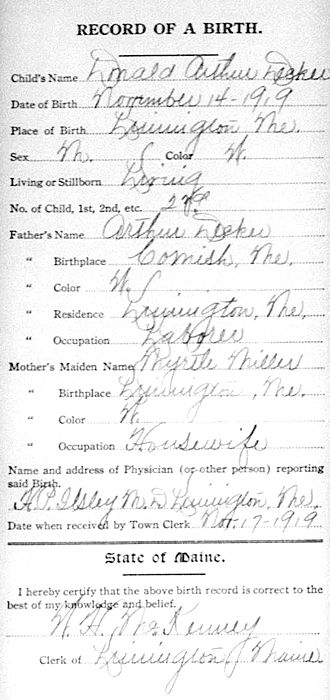 RECORD OF A BIRTH.
Child's Name Donald Arthur Decker
Date of Birth November 14-1919
Place of Birth Limington Me.
Sex M. Color W.
Living or Stillborn Living
No. of Child, 1st, 2nd, etc. 2nd
Father's Name Arthur Decker
" Birthplace Cornish, Me.
" Color W.
" Residence Limington, Me.
" Occupation Laborer
Mother's Maiden Name Myrtle Miller
" Birthplace Limington, Me.
" Color W.
" Occupation Housewife
Name and address of Physician (or other person) reporting
said Birth.
A.P. Ilsley M.D Limington, Me.
Date when received by Town Clerk Nov. 17-1919
State of Maine.
I hereby certify that the above birth record is correct to the
best of my knowledge and belief.
W. H. McKenney
Clerk of Limington, Maine